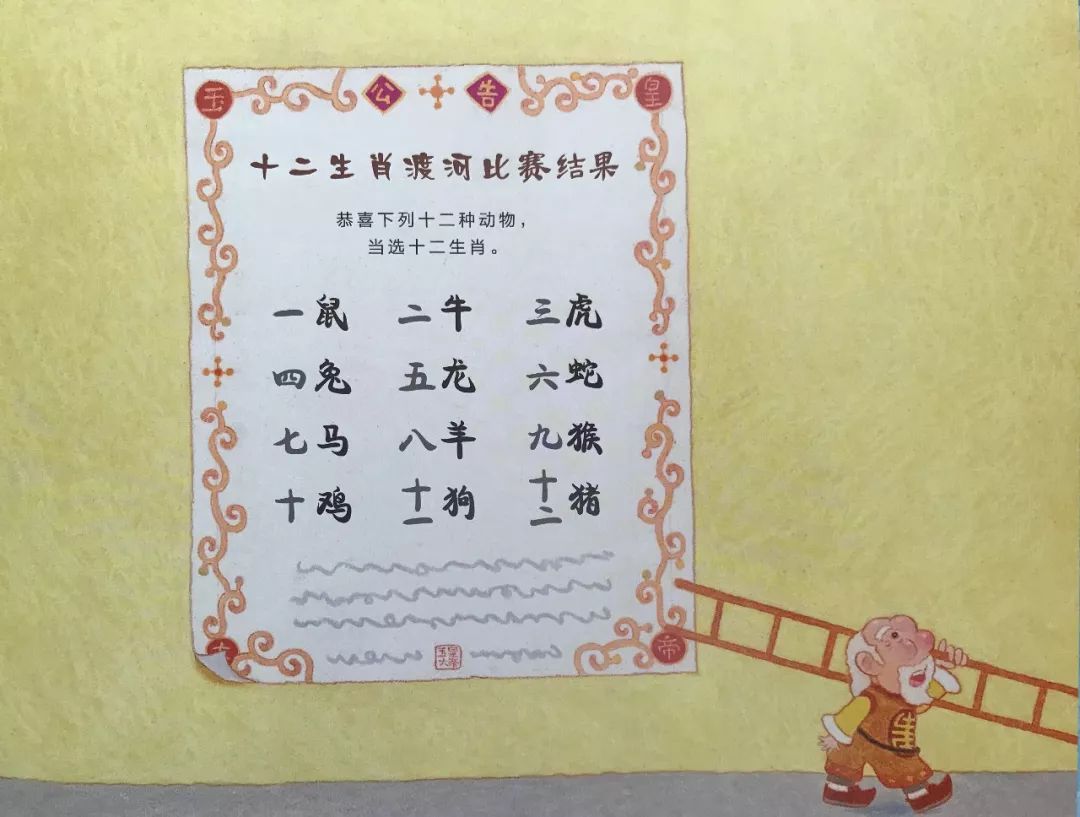 玉 公告 皇
十二生肖渡河比赛结果
恭喜下列十二种动物，
当选十二生肖。
一鼠 二牛 三虎
四兔 五龙 六蛇
七马 八羊 九猴
十鸡 十一狗 十二猪
大 玉皇大帝 帝